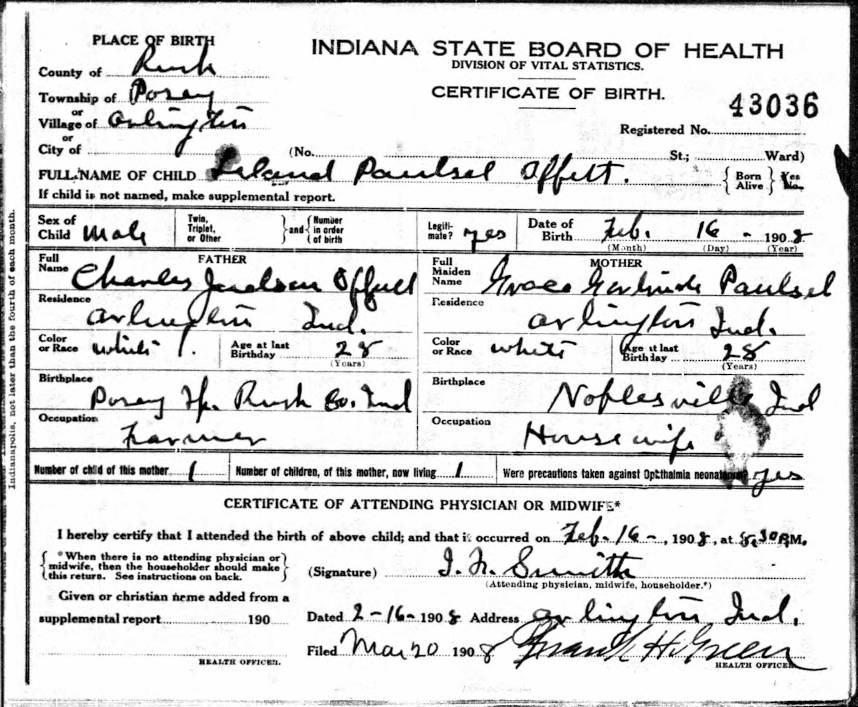 PLACE OF BIRTH
INDIANA STATE BOARD OF HEALTH
DIVISION OF VITAL STATISTICS.
CERTIFICATE OF BIRTH.
County of Rush
Township of Posey
or
Village of Arlington
or
City of
43036
Registered No.
(No. St.; Ward)
FULL NAME OF CHILD Leland Paulsel Offutt. { Born Alive } { Yes No.
If child is not named, make supplemental report.
Sex of Child Male Twin, Triplet, or Other } and { Number in order of birth Legiti- mate? yes Date of Birth Feb. 16 - 1908
(Month) (Day) (Year)
FATHER
Full Name Charles Jackson Offutt
Residence
Arlington Ind.
Color or Race White Age at last Birthday 28
(Years)
Birthplace
Posey Tp. Rush Co. Ind
Occupation
Farmer
MOTHER
Full Maiden Name Grace Gertrude Paulsel
Residence
Arlington Ind.
Color or Race White Age at last Birthday 28
(Years)
Birthplace
Noblesville Ind
Occupation
Housewife
Number of child of this mother 1 Number of children, of this mother, now living 1 Were precautions taken against Ophthalmia neonatorum? yes
CERTIFICATE OF ATTENDING PHYSICIAN OR MIDWIFE*
I hereby certify that I attended the birth of above child; and that it occurred on Feb-16-, 1908, at 8.30 P.M.
{ *When there is no attending physician or
midwife, then the householder should make
this return. See instructions on back. }
(Signature) Smith
(Attending physician, midwife, householder.*)
Given or christian name added from a
supplemental report 190
HEALTH OFFICER.
Dated 2-16-1908 Address Arlington Ind.
Filed Mar 20 1908 Frank H. Green
HEALTH OFFICER
Indianapolis, not later than the fourth of each month.